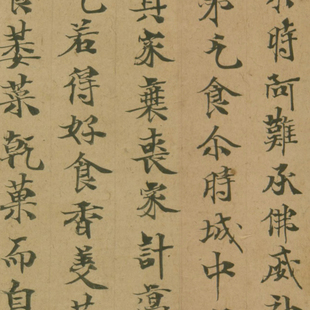 時阿難承佛威神
第乞食尒時城中
其家衰喪家計
乞若得好食香美
食萎菜乾菓而自